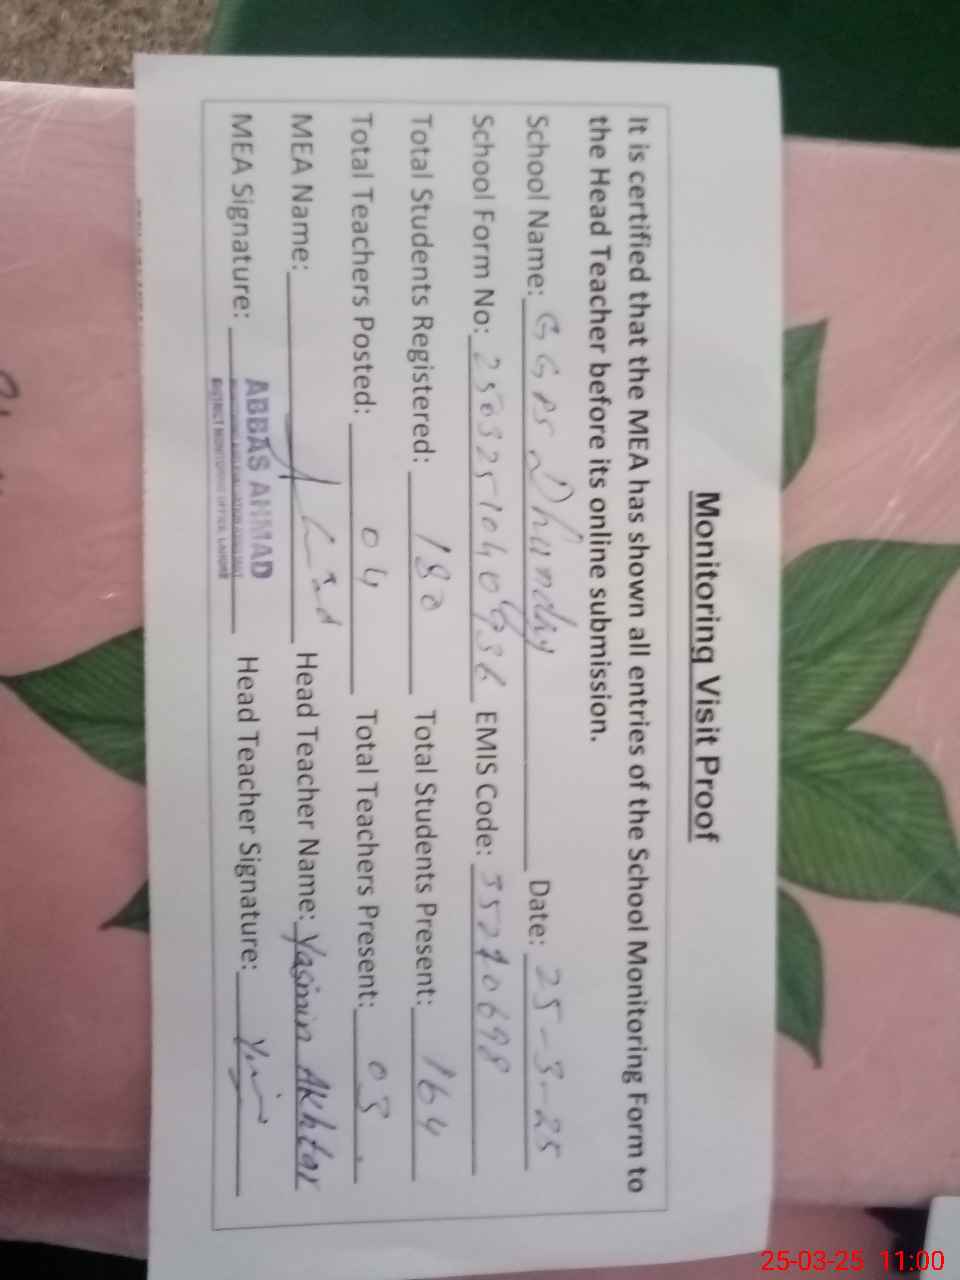 Monitoring Visit Proof
It is certified that the MEA has shown all entries of the School Monitoring Form to
the Head Teacher before its online submission.
School Name: GGPS Dhunday Date: 25-3-25
School Form No: EMIS Code: 35210698
Total Students Registered: 180 Total Students Present: 164
Total Teachers Posted: 04 Total Teachers Present: 03
MEA Name: Head Teacher Name: Yasmin Akhtar
MEA Signature: Head Teacher Signature:
ABBAS AHMAD
DISTRICT MONITORING OFFICE, LAHORE
25-03-25 11:00